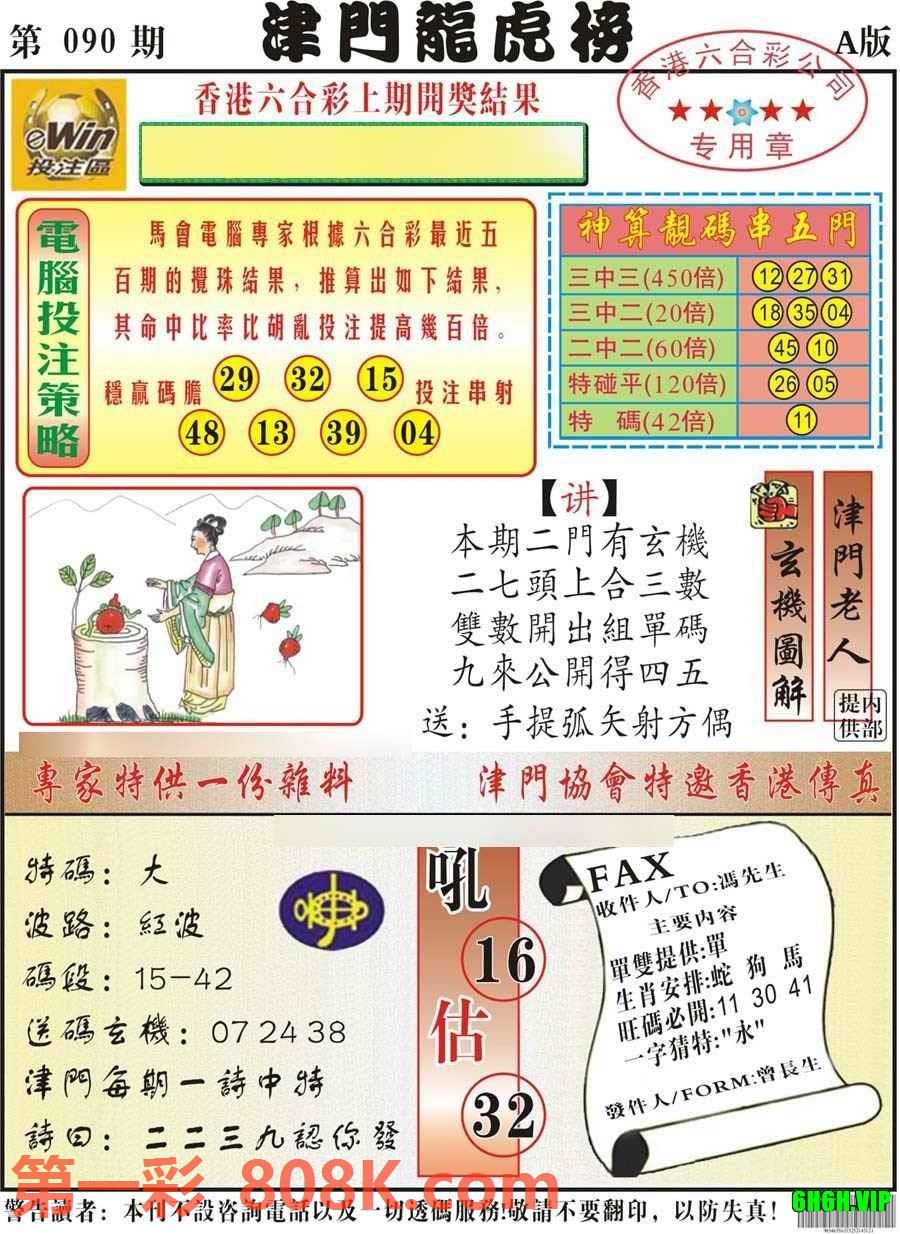 第 090 期
津門龍虎榜
A版
香港六合彩上期開獎結果
香港六合彩公司
专用章
eWin
投注區
電腦投注策略
馬會電腦專家根據六合彩最近五
百期的攪珠結果，推算出如下結果，
其命中比率比胡亂投注提高幾百倍。
穩贏碼膽 29 32 15 投注串射
48 13 39 04
神算靚碼串五門
三中三(450倍) 12 27 31
三中二(20倍) 18 35 04
二中二(60倍) 45 10
特碰平(120倍) 26 05
特 碼(42倍) 11
【讲】
本期二門有玄機
二七頭上合三數
雙數開出組單碼
九來公開得四五
送：手提弧矢射方偶
玄機圖解
津門老人
内部提供
專家特供一份雜料
津門協會特邀香港傳真
特碼：大
波路：紅波
碼段：15-42
送碼玄機：07 24 38
津門每期一詩中特
詩曰：二二三九認你發
吼
16
估
32
FAX
收件人/TO:馮先生
主要内容
單雙提供:單
生肖安排:蛇 狗 馬
旺碼必開:11 30 41
一字猜特:"永"
發件人/FORM:曾長生
第一彩 808K.com
警告讀者：本刊不設咨詢電話以及一切透碼服務!敬請不要翻印，以防失真！
6H6H.VIP